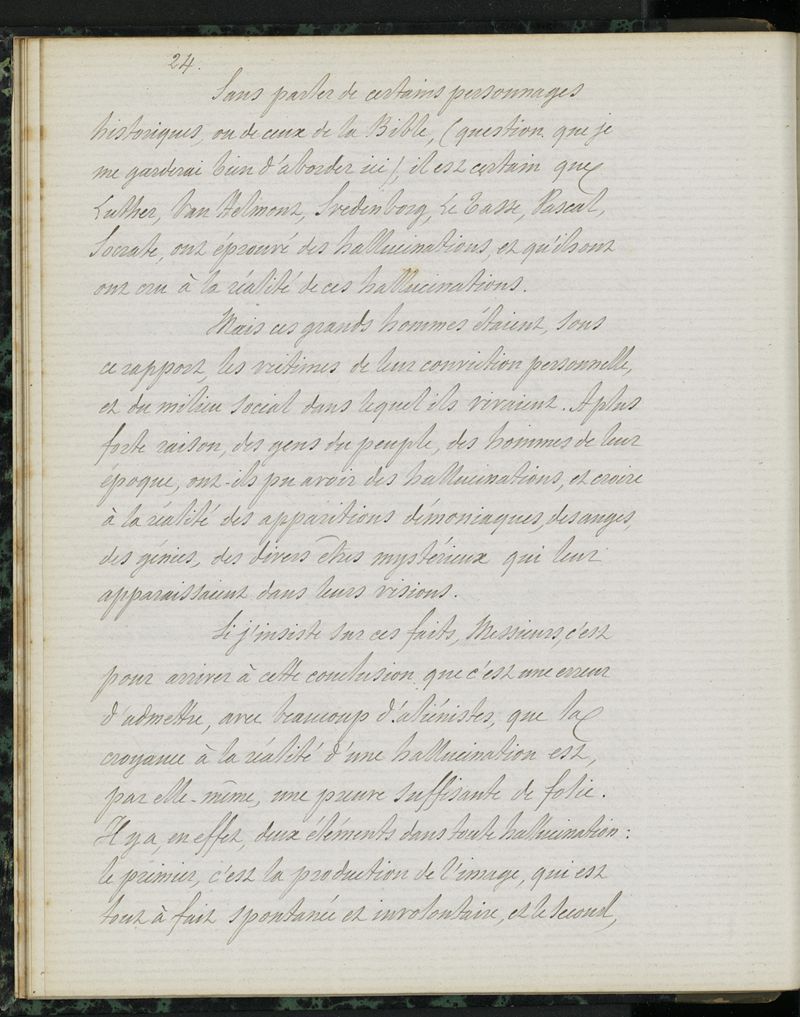 24.
Sans parler de certains personnages
historiques, ou de ceux de la Bible, (question que je
me garderai bien d'aborder ici), il est certain que
Luther, Van Helmont, Svedenborg, Le Tasse, Pascal,
Socrate, ont éprouvé des hallucinations, et qu'ils ont
ont cru à la réalité de ces hallucinations.
Mais ces grands hommes étaient, sous
ce rapport, les victimes de leur conviction personnelle,
et du milieu social dans lequel ils vivaient. A plus
forte raison, des gens du peuple, des hommes de leur
époque, ont-ils pu avoir des hallucinations, et croire
à la réalité des apparitions démoniaques, des anges,
des génies, des divers êtres mystérieux qui leur
apparaissaient dans leurs visions.
Si j'insiste sur ces faits, Messieurs, c'est
pour arriver à cette conclusion que c'est une erreur
d'admettre, avec beaucoup d'aliénistes, que la
croyance à la réalité d'une hallucination est,
par elle-même, une preuve suffisante de folie.
Il y a, en effet, deux éléments dans toute hallucination :
le premier, c'est la production de l'image, qui est
tout à fait spontanée et involontaire, et le second,